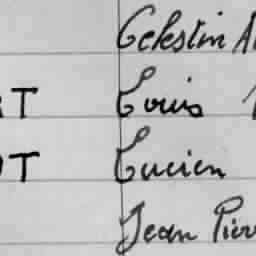 Celestin A
T Louis
T Lucien
Jean Pierr